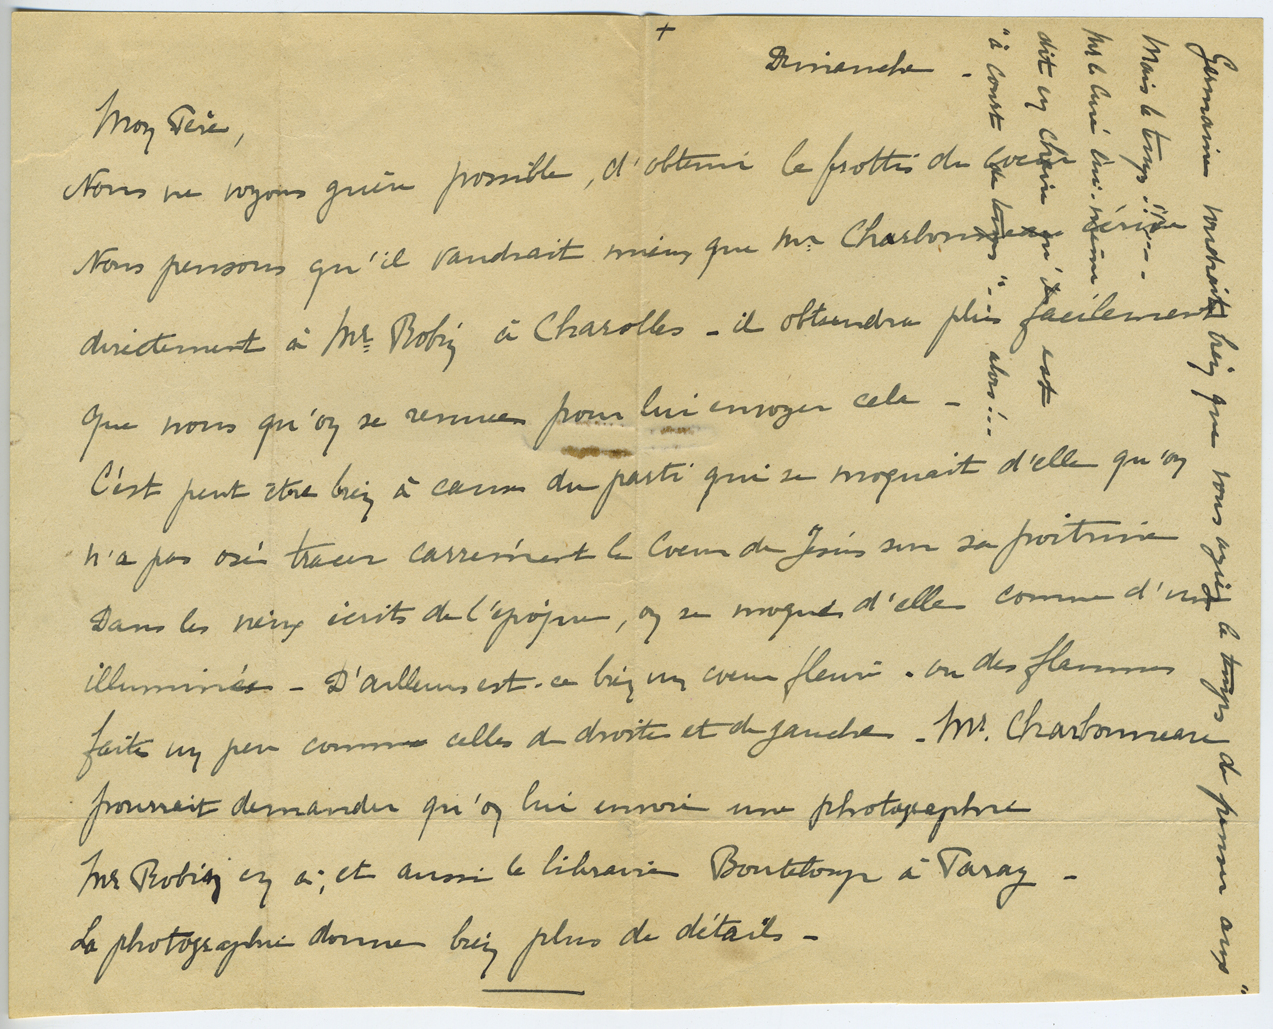 +
Dimanche -
Mon Père,
Nous ne voyons guère possible, d'obtenir le frottis du coeur
Nous pensons qu'il vaudrait mieux que Mr Charbonneau écrive
directement à Mr Robin à Charolles - il obtiendra plus facilement
que nous qu'on se remue pour lui envoyer cela -
C'est peut être bien à cause du parti qui se moquait d'elle qu'on
n'a pas osé tracer carrément le Coeur de Jésus sur sa poitrine
Dans les vieux écrits de l'époque, on se moque d'elle comme d'une
illuminée - D'ailleurs est-ce bien un coeur fleuri - ou des flammes
faites un peu comme celles de droite et de gauche - Mr. Charbonneau
pourrait demander qu'on lui envoie une photographie
Mr Robin en a, et aussi le libraire Bouteloup à Paray -
La photographie donne bien plus de détails -
Germaine voudrait bien que vous ayiez le temps de penser aux "
Mais le temps !!....
Mr le Curé lui-même
dit en Chaire qu'il est
"à court de temps"... alors !...